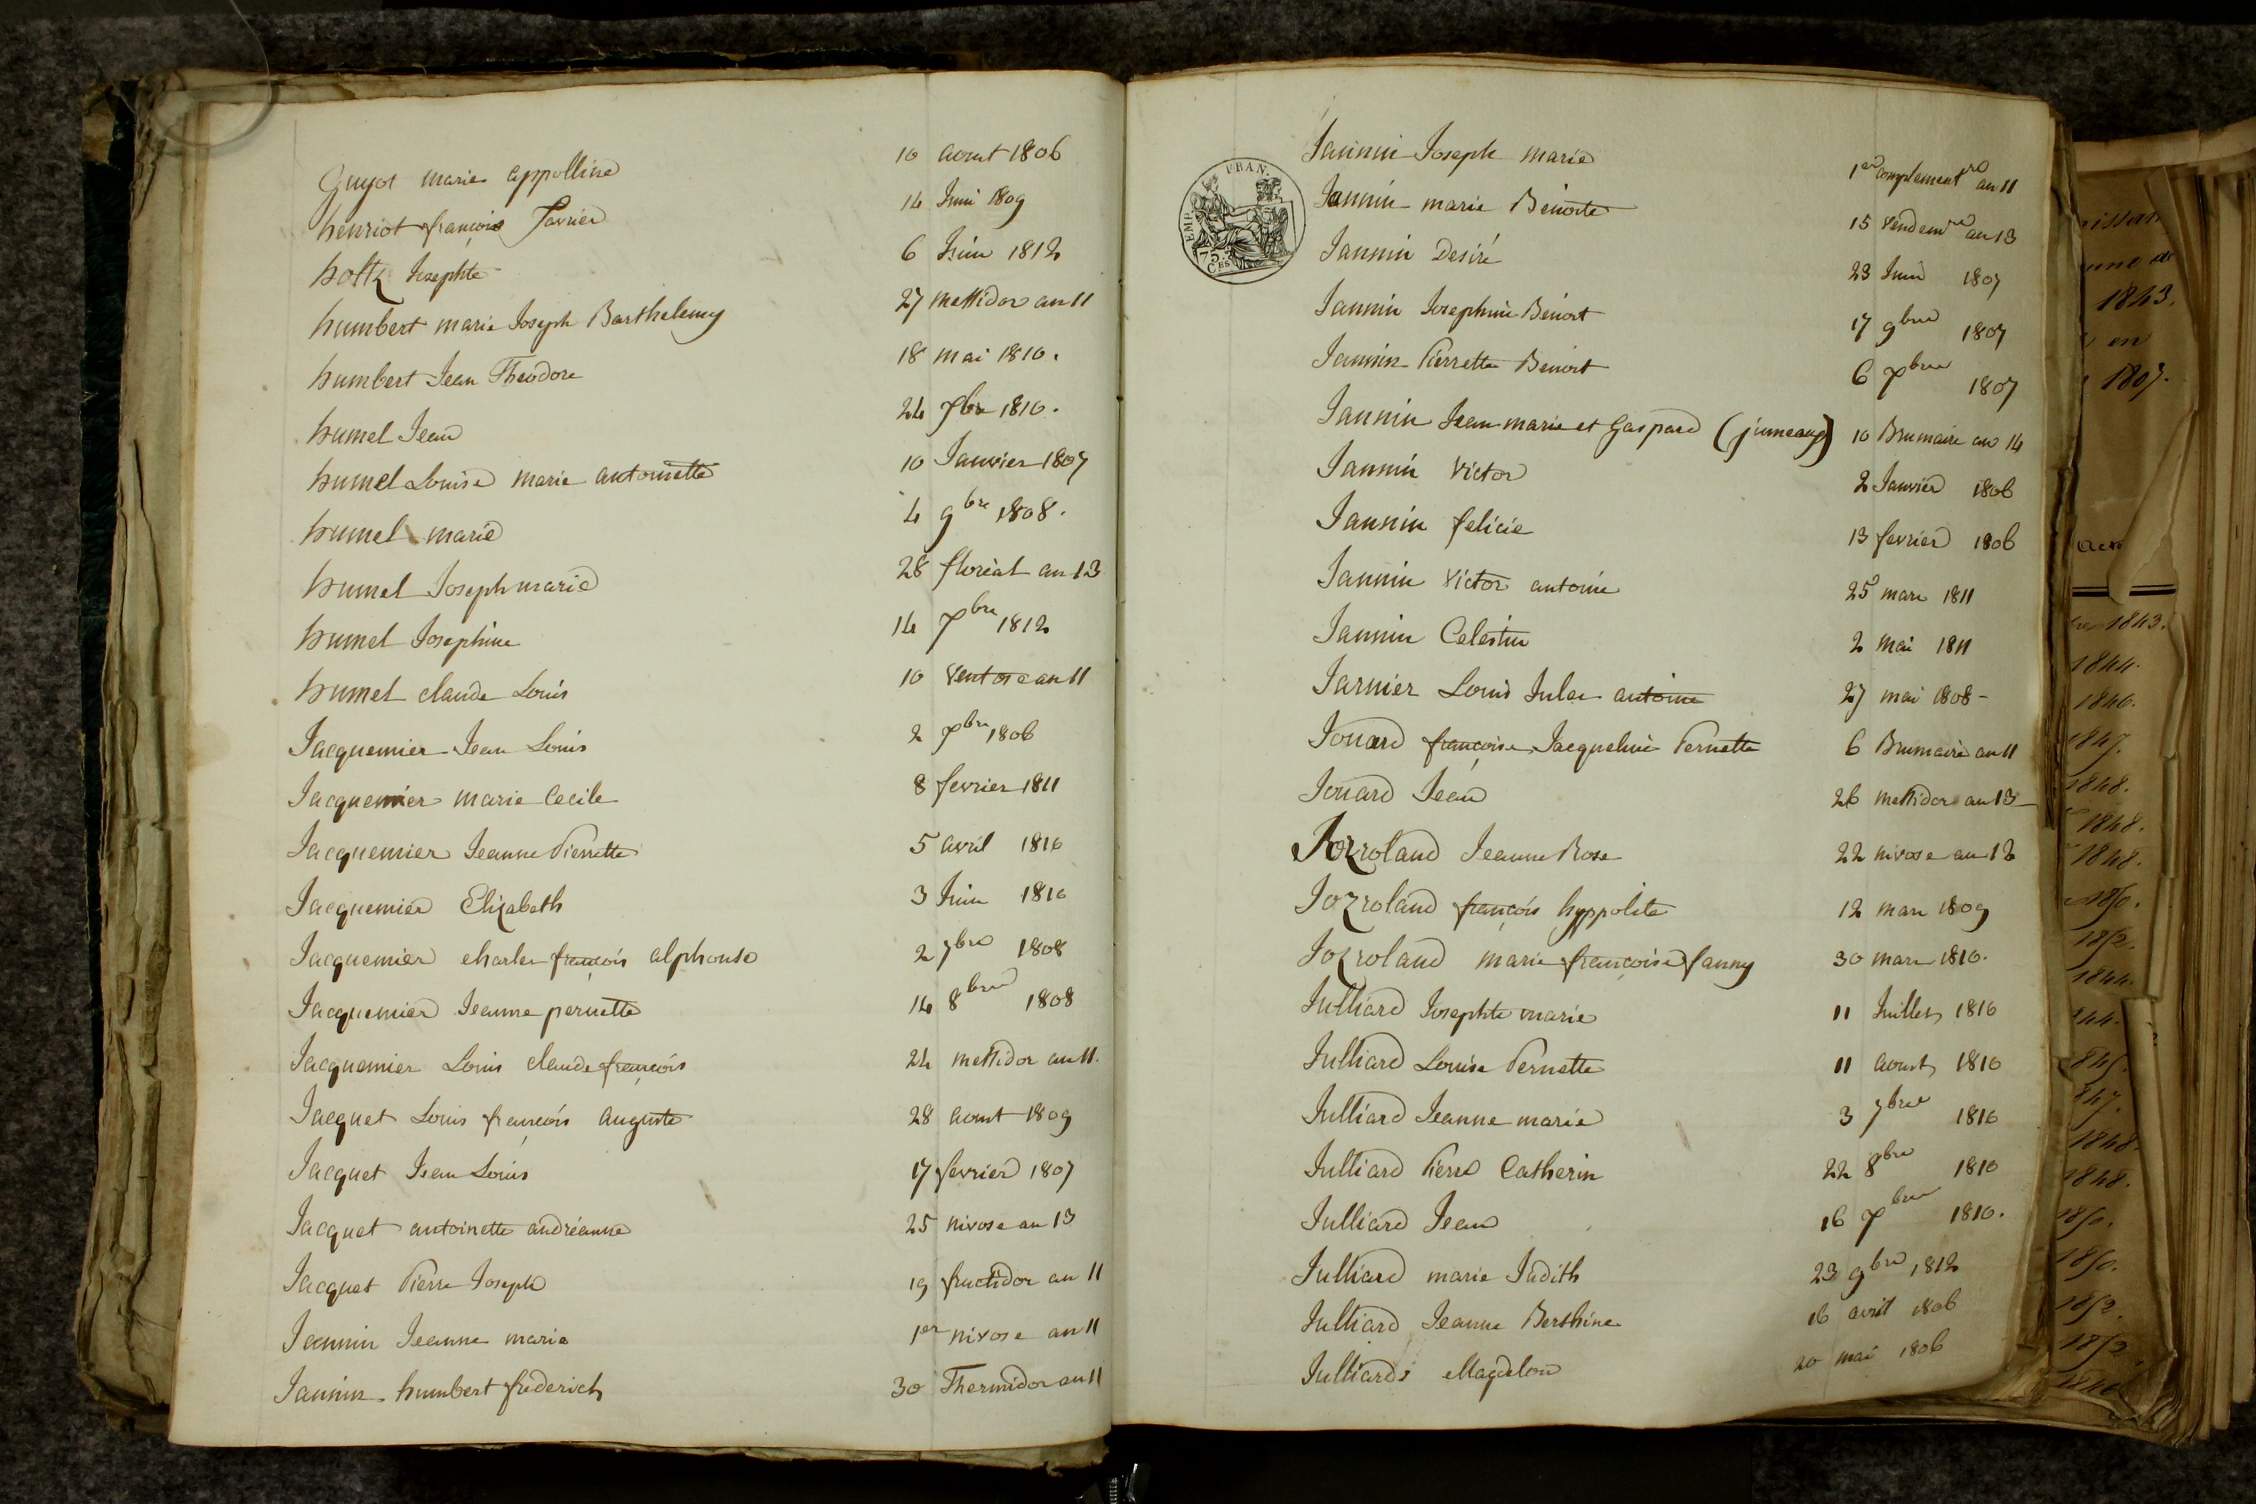 Guyot marie appolline 10 aout 1806
henriot françois Xavier 14 Juin 1809
holtz Josephte 6 Juin 1812
humbert marie Joseph Barthelemy 27 messidor an 11
humbert Jean Theodore 18 mai 1810.
humel Jean 24 xbre 1810.
humel Louise marie antoinette 10 Janvier 1807
humel marie 4 9bre 1808.
humel Joseph marie 28 floréal an 13
humel Josephine 14 xbre 1812
humel claude Louis 10 ventose an 11
Jacquemier Jean Louis 2 xbre 1806
Jacquemier marie Cecile 8 fevrier 1811
Jacquemier Jeanne Pierrette 5 avril 1810
Jacquemier Elizabeth 3 Juin 1810
Jacquemier charles françois alphonse 2 7bre 1808
Jacquemier Jeanne pernette 14 8bre 1808
Jacquemier Louis claude françois 24 messidor an 11.
Jacquet Louis françois auguste 28 aout 1809
Jacquet Jean Louis 17 fevrier 1807
Jacquet antoinette andréanne 25 nivose an 13
Jacquet Pierre Joseph 19 fructidor an 11
Jannin Jeanne marie 1er nivose an 11
Jannin humbert fréderich 30 Thermidor an 11
EMP. FRAN.
75.
CES
Jannin Joseph marie 1er complementre an 11
Jannin marie Benoite 15 vendemre an 13
Jannin Desiré 23 Juin 1807
Jannin Josephine Benoit 17 9bre 1807
Jannin Pierrette Benoit 6 xbre 1807
Jannin Jean marie et Gaspard (jumeaux) 10 Brumaire an 14
Jannin victor 2 Janvier 1806
Jannin felicie 13 fevrier 1806
Jannin victor antoine 25 mars 1811
Jannin Celestin 2 mai 1811
Jarnier Louis Jules antoine 27 mai 1808
Jouard françoise Jacqueline Pernette 6 Brumaire an 11
Jouard Jean 26 messidor an 13
Jozroland Jeanne Rose 22 nivose an 12
Jozroland françois hyppolite 12 mars 1809
Jozroland marie françoise fanny 30 mars 1810.
Julliard Josephte marie 11 Juillet 1810
Julliard Louise Pernette 11 aout 1810
Julliard Jeanne marie 3 7bre 1810
Julliard Pierre Catherin 22 8bre 1810
Julliard Jean 16 xbre 1810.
Julliard marie Judith 23 9bre 1812
Julliard Jeanne Berthine 16 avril 1806
Julliard Magdelon 20 mai 1806